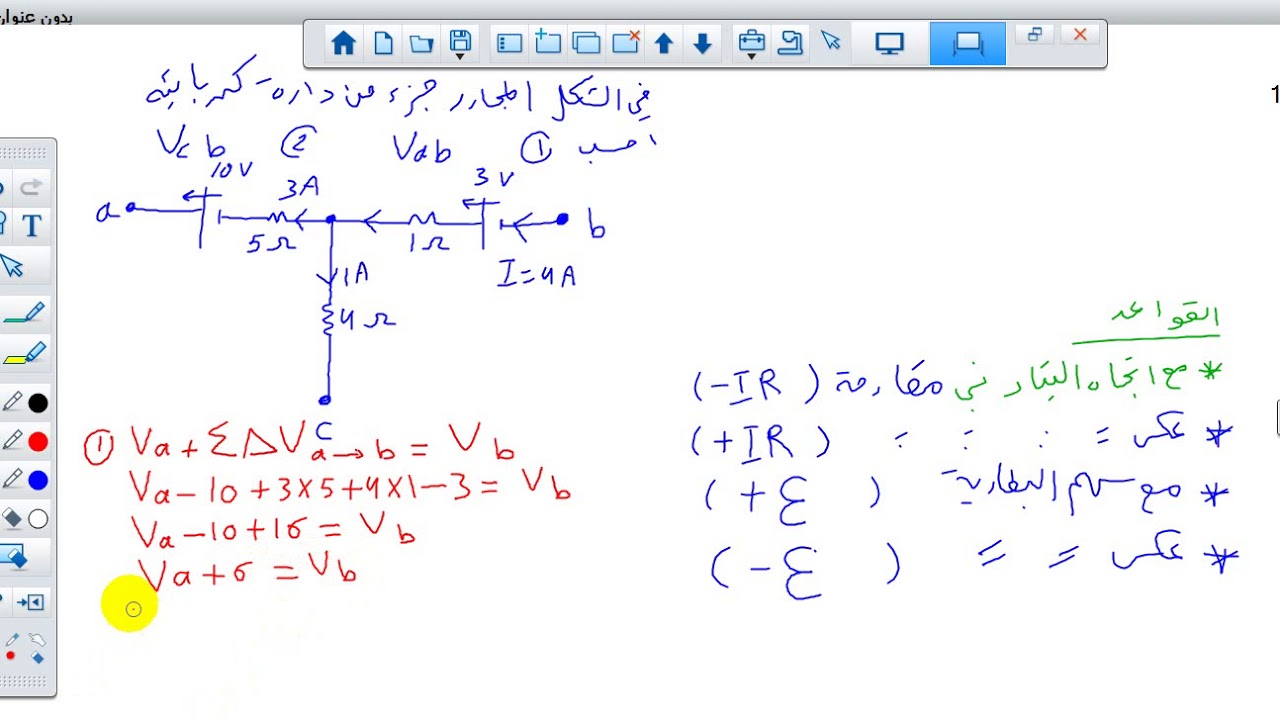 بدون عنوان
1
T
في الشكل المجاور جزء من داره كهربائيه
احسب ① Vab ② Vcb
10V 3A 3V
a b
5Ω 1Ω
1A I=4A
4Ω
c
القواعد
* مع اتجاه التيار في مقاومة (-IR)
* عكس = : : = (+IR)
* مع سهم البطارية (+Ɛ)
* عكس = = (-Ɛ)
① Va + ΣΔV a→b = Vb
Va - 10 + 3×5 + 4×1 - 3 = Vb
Va - 10 + 16 = Vb
Va + 6 = Vb